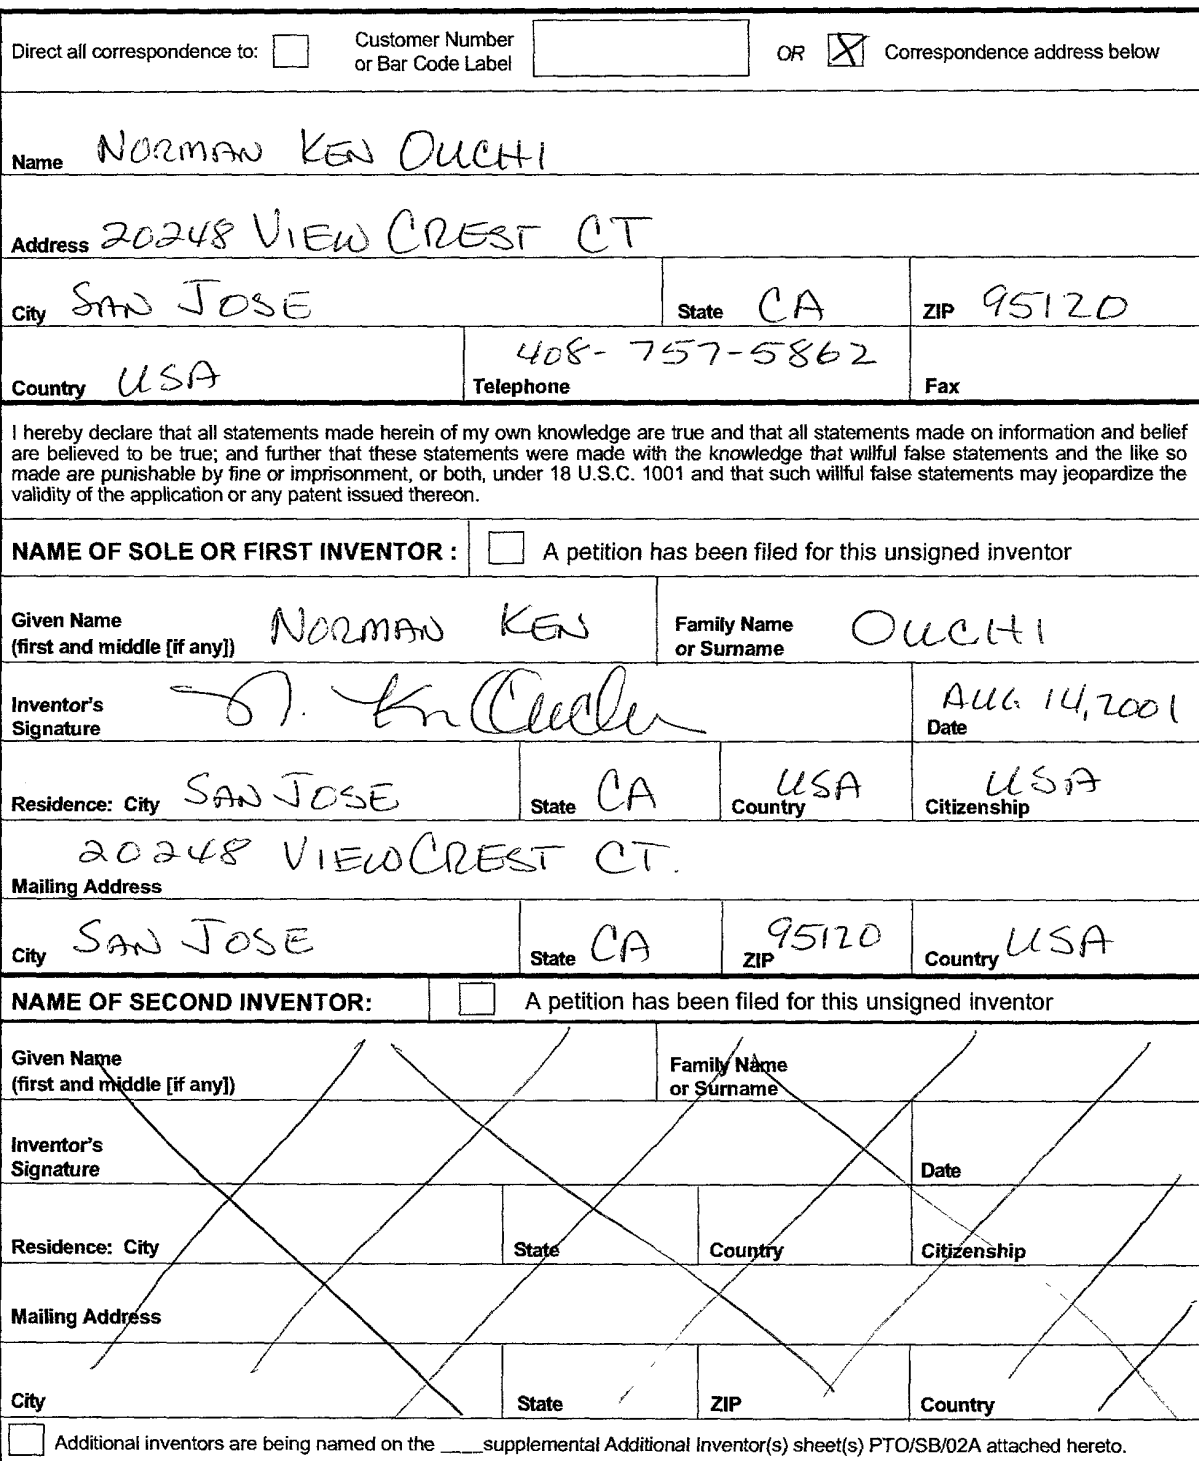 Direct all correspondence to: Customer Number or Bar Code Label OR X Correspondence address below
Name NORMAN KEN OUCHI
Address 20248 VIEW CREST CT
City SAN JOSE State CA ZIP 95120
Country USA Telephone 408-757-5862 Fax
I hereby declare that all statements made herein of my own knowledge are true and that all statements made on information and belief
are believed to be true; and further that these statements were made with the knowledge that willful false statements and the like so
made are punishable by fine or imprisonment, or both, under 18 U.S.C. 1001 and that such willful false statements may jeopardize the
validity of the application or any patent issued thereon.
NAME OF SOLE OR FIRST INVENTOR : A petition has been filed for this unsigned inventor
Given Name (first and middle [if any]) NORMAN KEN Family Name or Surname OUCHI
Inventor's Signature N. Ken Ouchi AUG. 14, 2001 Date
Residence: City SAN JOSE State CA Country USA Citizenship USA
20248 VIEWCREST CT.
Mailing Address
City SAN JOSE State CA ZIP 95120 Country USA
NAME OF SECOND INVENTOR: A petition has been filed for this unsigned inventor
Given Name (first and middle [if any]) Family Name or Surname
Inventor's Signature Date
Residence: City State Country Citizenship
Mailing Address
City State ZIP Country
Additional inventors are being named on the ____supplemental Additional Inventor(s) sheet(s) PTO/SB/02A attached hereto.